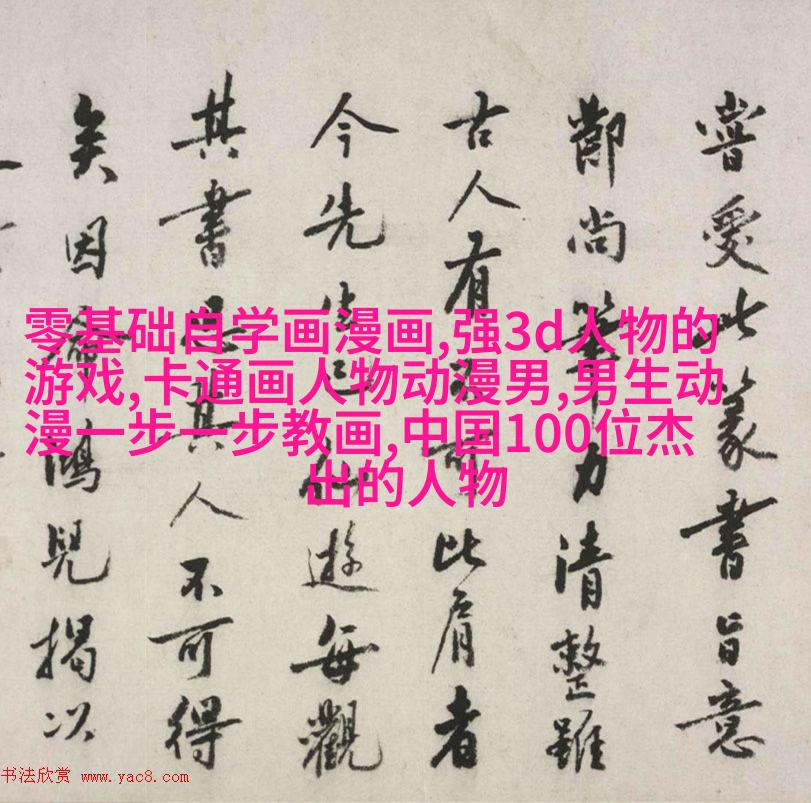 嘗愛此篆書旨意
尚筆力清整雖
古人有可比肩者
今先生已仙遊每觀
其書思其人不可得
矣因鴻兒揭以
零基础自学画漫画,强3d人物的
游戏,卡通画人物动漫男,男生动
漫一步一步教画,中国100位杰
出的人物
书法欣赏 www.yac8.com